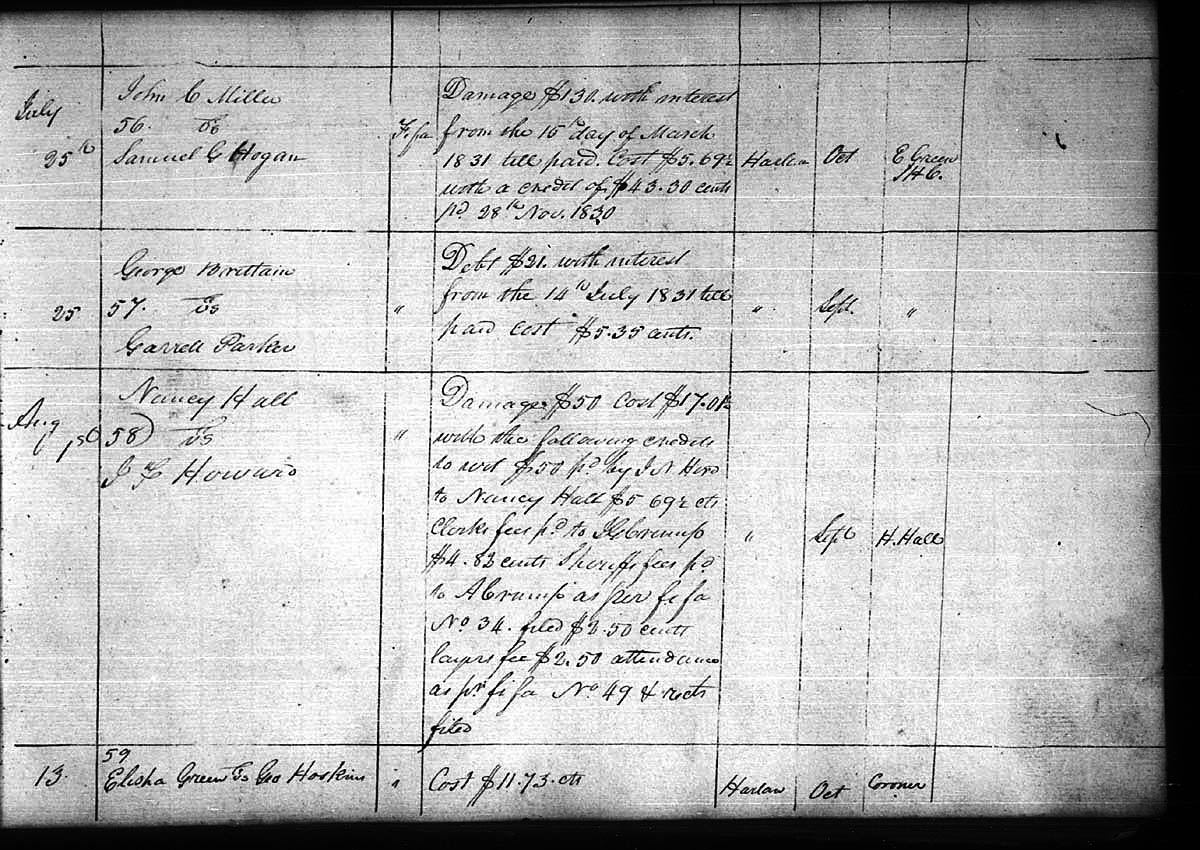 July
25th
John C Miller
56. vs
Samuel G Hogan
Fi fa
Damage $130. with interest
from the 15th day of March
1831 till paid. Cost $5.69½
with a credit of $43.30 cents
pd 28th Nov. 1830
Harlan
Oct
E Green
SHC.
25
George Brittain
57. vs
Garrett Parker
"
Debt $21. with interest
from the 14th July 1831 till
paid cost $5.35 cents.
"
Sept.
"
Aug
1st
Nancy Hall
58) vs
J F Howard
"
Damage $50 Cost $17.01½
with the following credits
to wit $50 pd by J N Hord
to Nancy Hall $5 69½ cts
Clerks fees pd to J G Crump
$4.82 cents Sheriffs fees pd
to A Crump as per fi fa
No 34. filed $2.50 cents
layers fee $2.50 attendance
as pr fi fa No 49 & rects
filed
"
Sept
H. Hall
13.
59
Elisha Green vs Geo Hoskins
"
Cost $11.73. cts
Harlan
Oct
Coroner